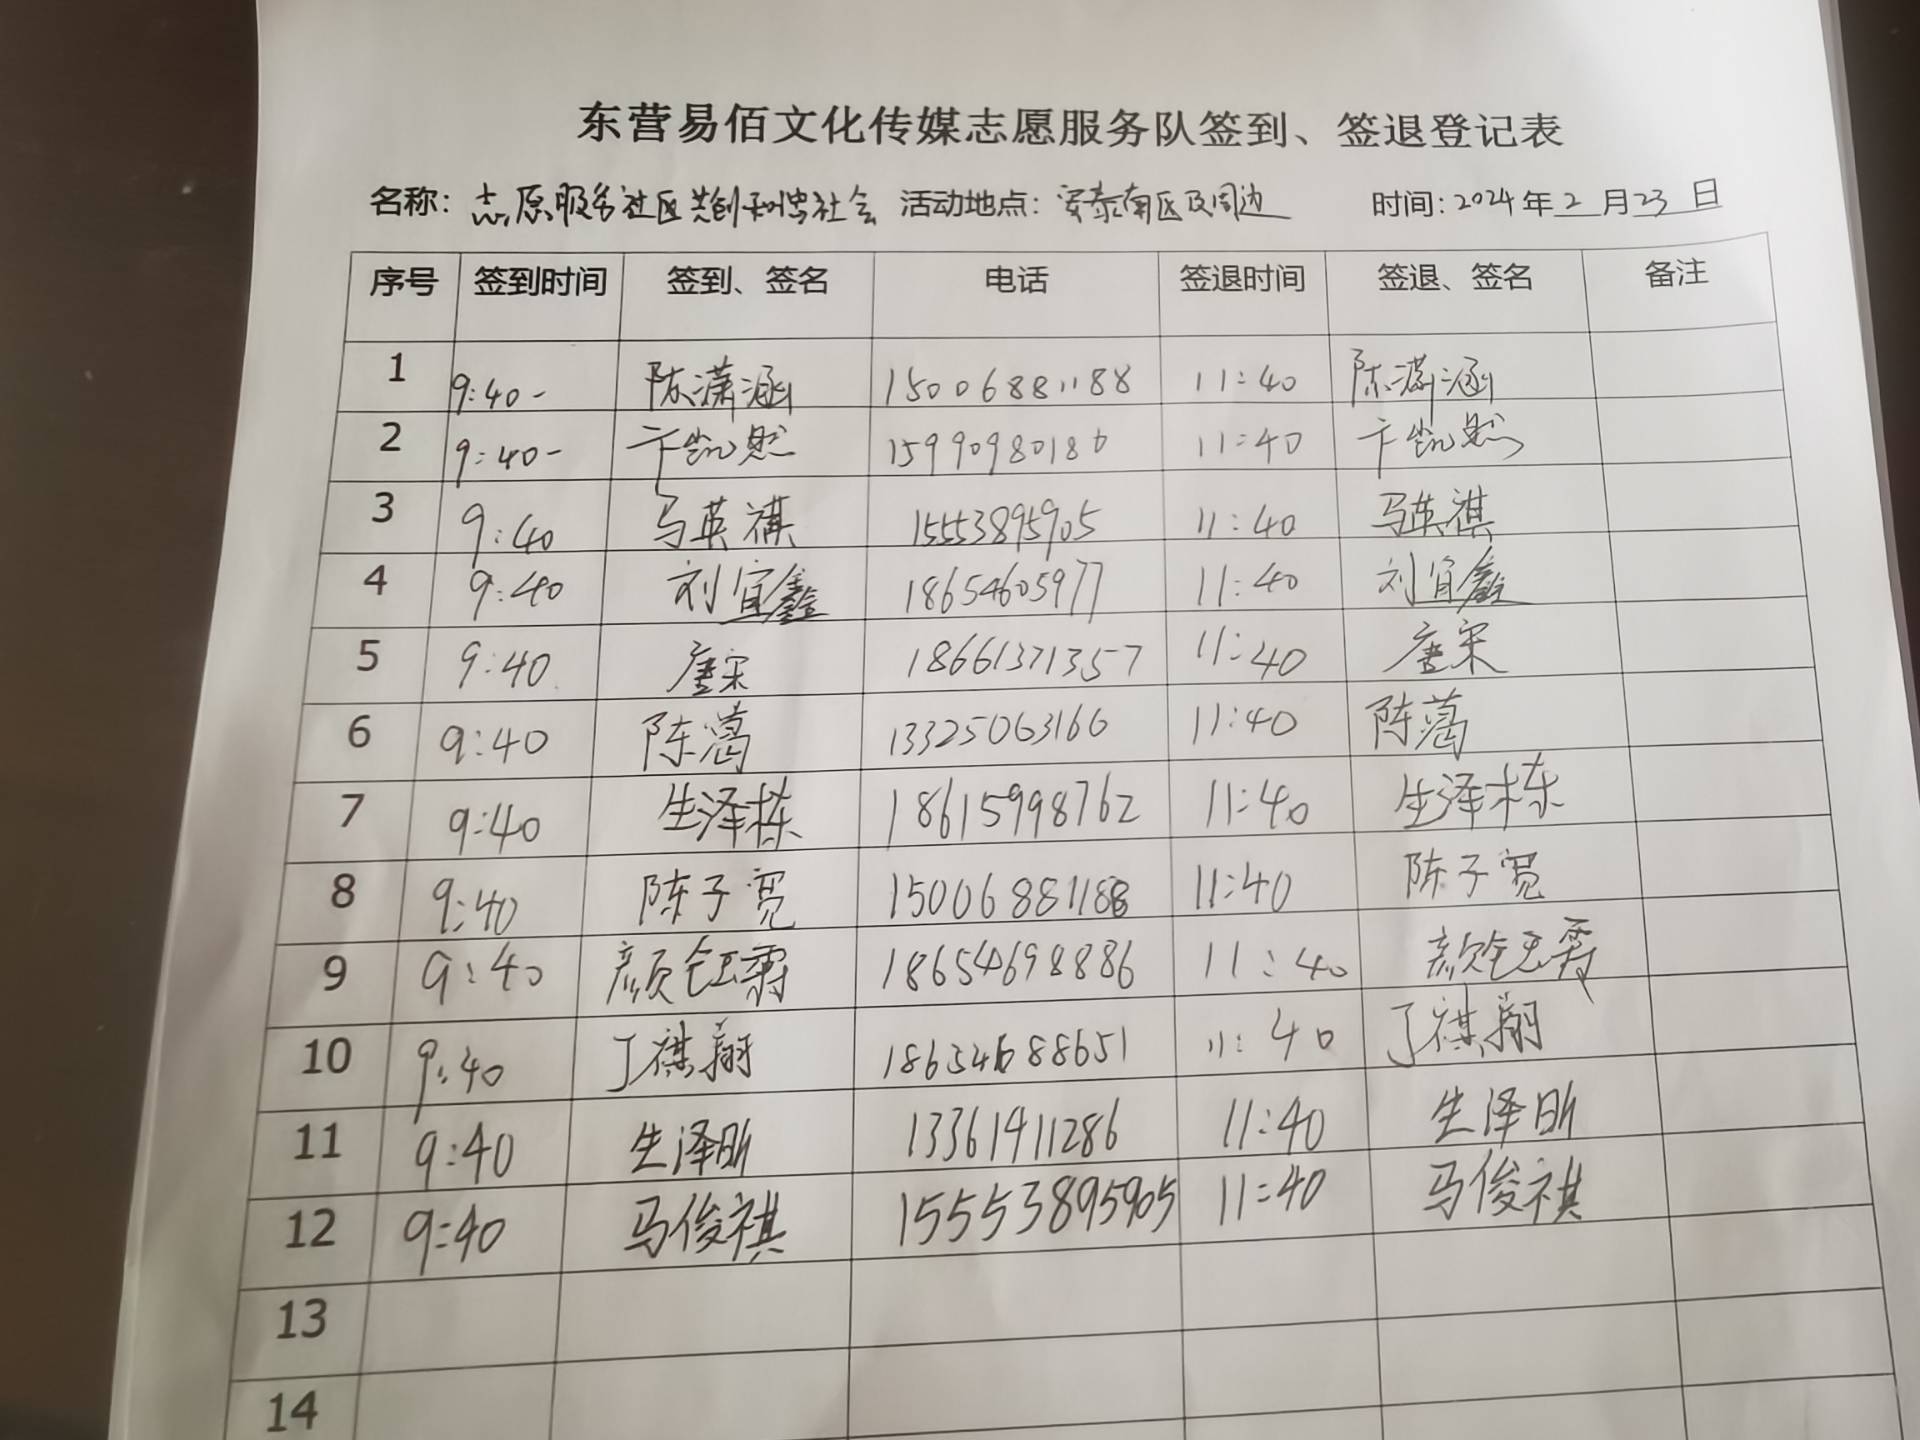 东营易佰文化传媒志愿服务队签到、签退登记表
名称: 志愿服务社区共创和谐社会 活动地点: 安泰南区及周边 时间: 2024年2月23日
序号 签到时间 签到、签名 电话 签退时间 签退、签名 备注
1 9:40- 陈潇涵 15006881188 11:40 陈潇涵
2 9:40- 卞凯然 15990980186 11:40 卞凯然
3 9:40 马英祺 15553895905 11:40 马英祺
4 9:40 刘宜鑫 18654605977 11:40 刘宜鑫
5 9:40 唐宋 18661371357 11:40 唐宋
6 9:40 陈蔼 13325063166 11:40 陈蔼
7 9:40 生泽栋 18615998762 11:40 生泽栋
8 9:40 陈子宽 15006881188 11:40 陈子宽
9 9:40 颜钰霏 18654698886 11:40 颜钰霏
10 9:40 丁祺翔 18654688651 11:40 丁祺翔
11 9:40 生泽昕 13361411286 11:40 生泽昕
12 9:40 马俊祺 15553895905 11:40 马俊祺
13
14